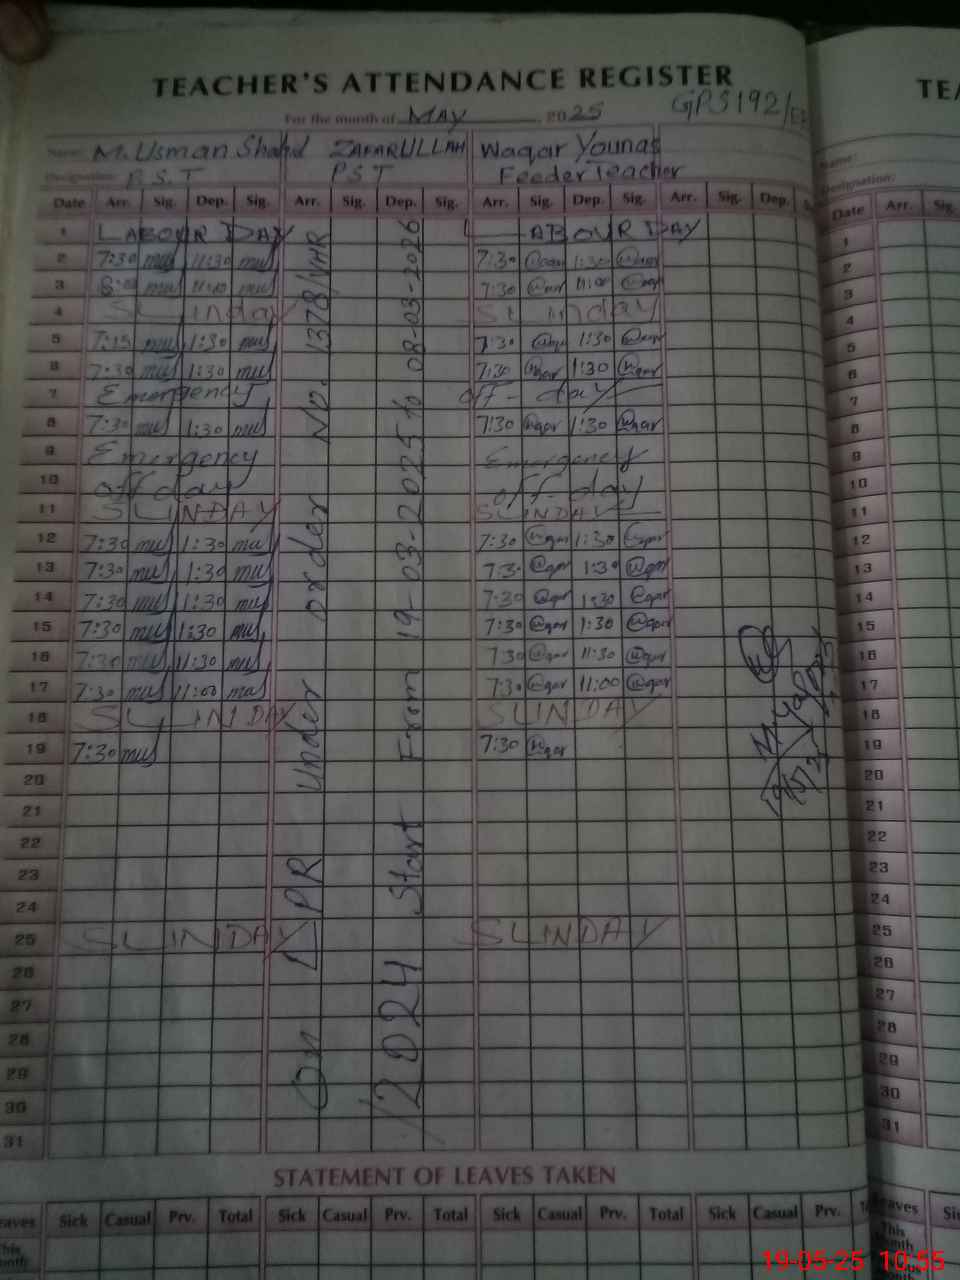 TEACHER'S ATTENDANCE REGISTER
TEA
For the month of MAY 2025 GPS192/E
Name: M. Usman Shahid ZAFARULLAH Waqar Younas Name:
Designation: P.S.T PST Feeder Teacher Designation:
Date Arr. Sig. Dep. Sig. Arr. Sig. Dep. Sig. Arr. Sig. Dep. Sig. Arr. Sig. Dep. Date Arr. Sig.
1 LABOUR DAY LABOUR DAY 1
2 7:30 mus 11:30 mus 7:30 Waqar 1:30 Waqar 2
3 8:00 mus 11:00 mus 7:30 Waqar 11:00 Waqar 3
4 SUnday SUnday 4
5 7:15 mus 1:30 mus 7:30 Waqar 1:30 Waqar 5
6 7:30 mus 1:30 mus 7:30 Waqar 1:30 Waqar 6
7 Emergency off-day 7
8 7:30 mus 1:30 mus 7:30 Waqar 1:30 Waqar 8
9 Emergency Emergency 9
10 off day off-day 10
11 SUNDAY SUNDAY 11
12 7:30 mus 1:30 mus 7:30 Waqar 1:30 Waqar 12
13 7:30 mus 1:30 mus 7:30 Waqar 1:30 Waqar 13
14 7:30 mus 11:30 mus 7:30 Waqar 1:30 Waqar 14
15 7:30 mus 1:30 mus 7:30 Waqar 1:30 Waqar 15
16 7:30 mus 11:30 mus 7:30 Waqar 11:30 Waqar 16
17 7:30 mus 11:00 mus 7:30 Waqar 11:00 Waqar 17
18 SUNDAY SUNDAY 18
19 7:30 mus 7:30 Waqar 19
20 20
21 21
22 22
23 23
24 24
25 SUNDAY SUNDAY 25
26 26
27 27
28 28
29 29
30 30
31 31
On LPR Under order No. 1378/VHR
/2024 Start From 19-03-2025 to 08-03-2026
STATEMENT OF LEAVES TAKEN
eaves Sick Casual Prv. Total Sick Casual Prv. Total Sick Casual Prv. Total Sick Casual Prv. Leaves
This This
Month Month
19-05-25 10:55